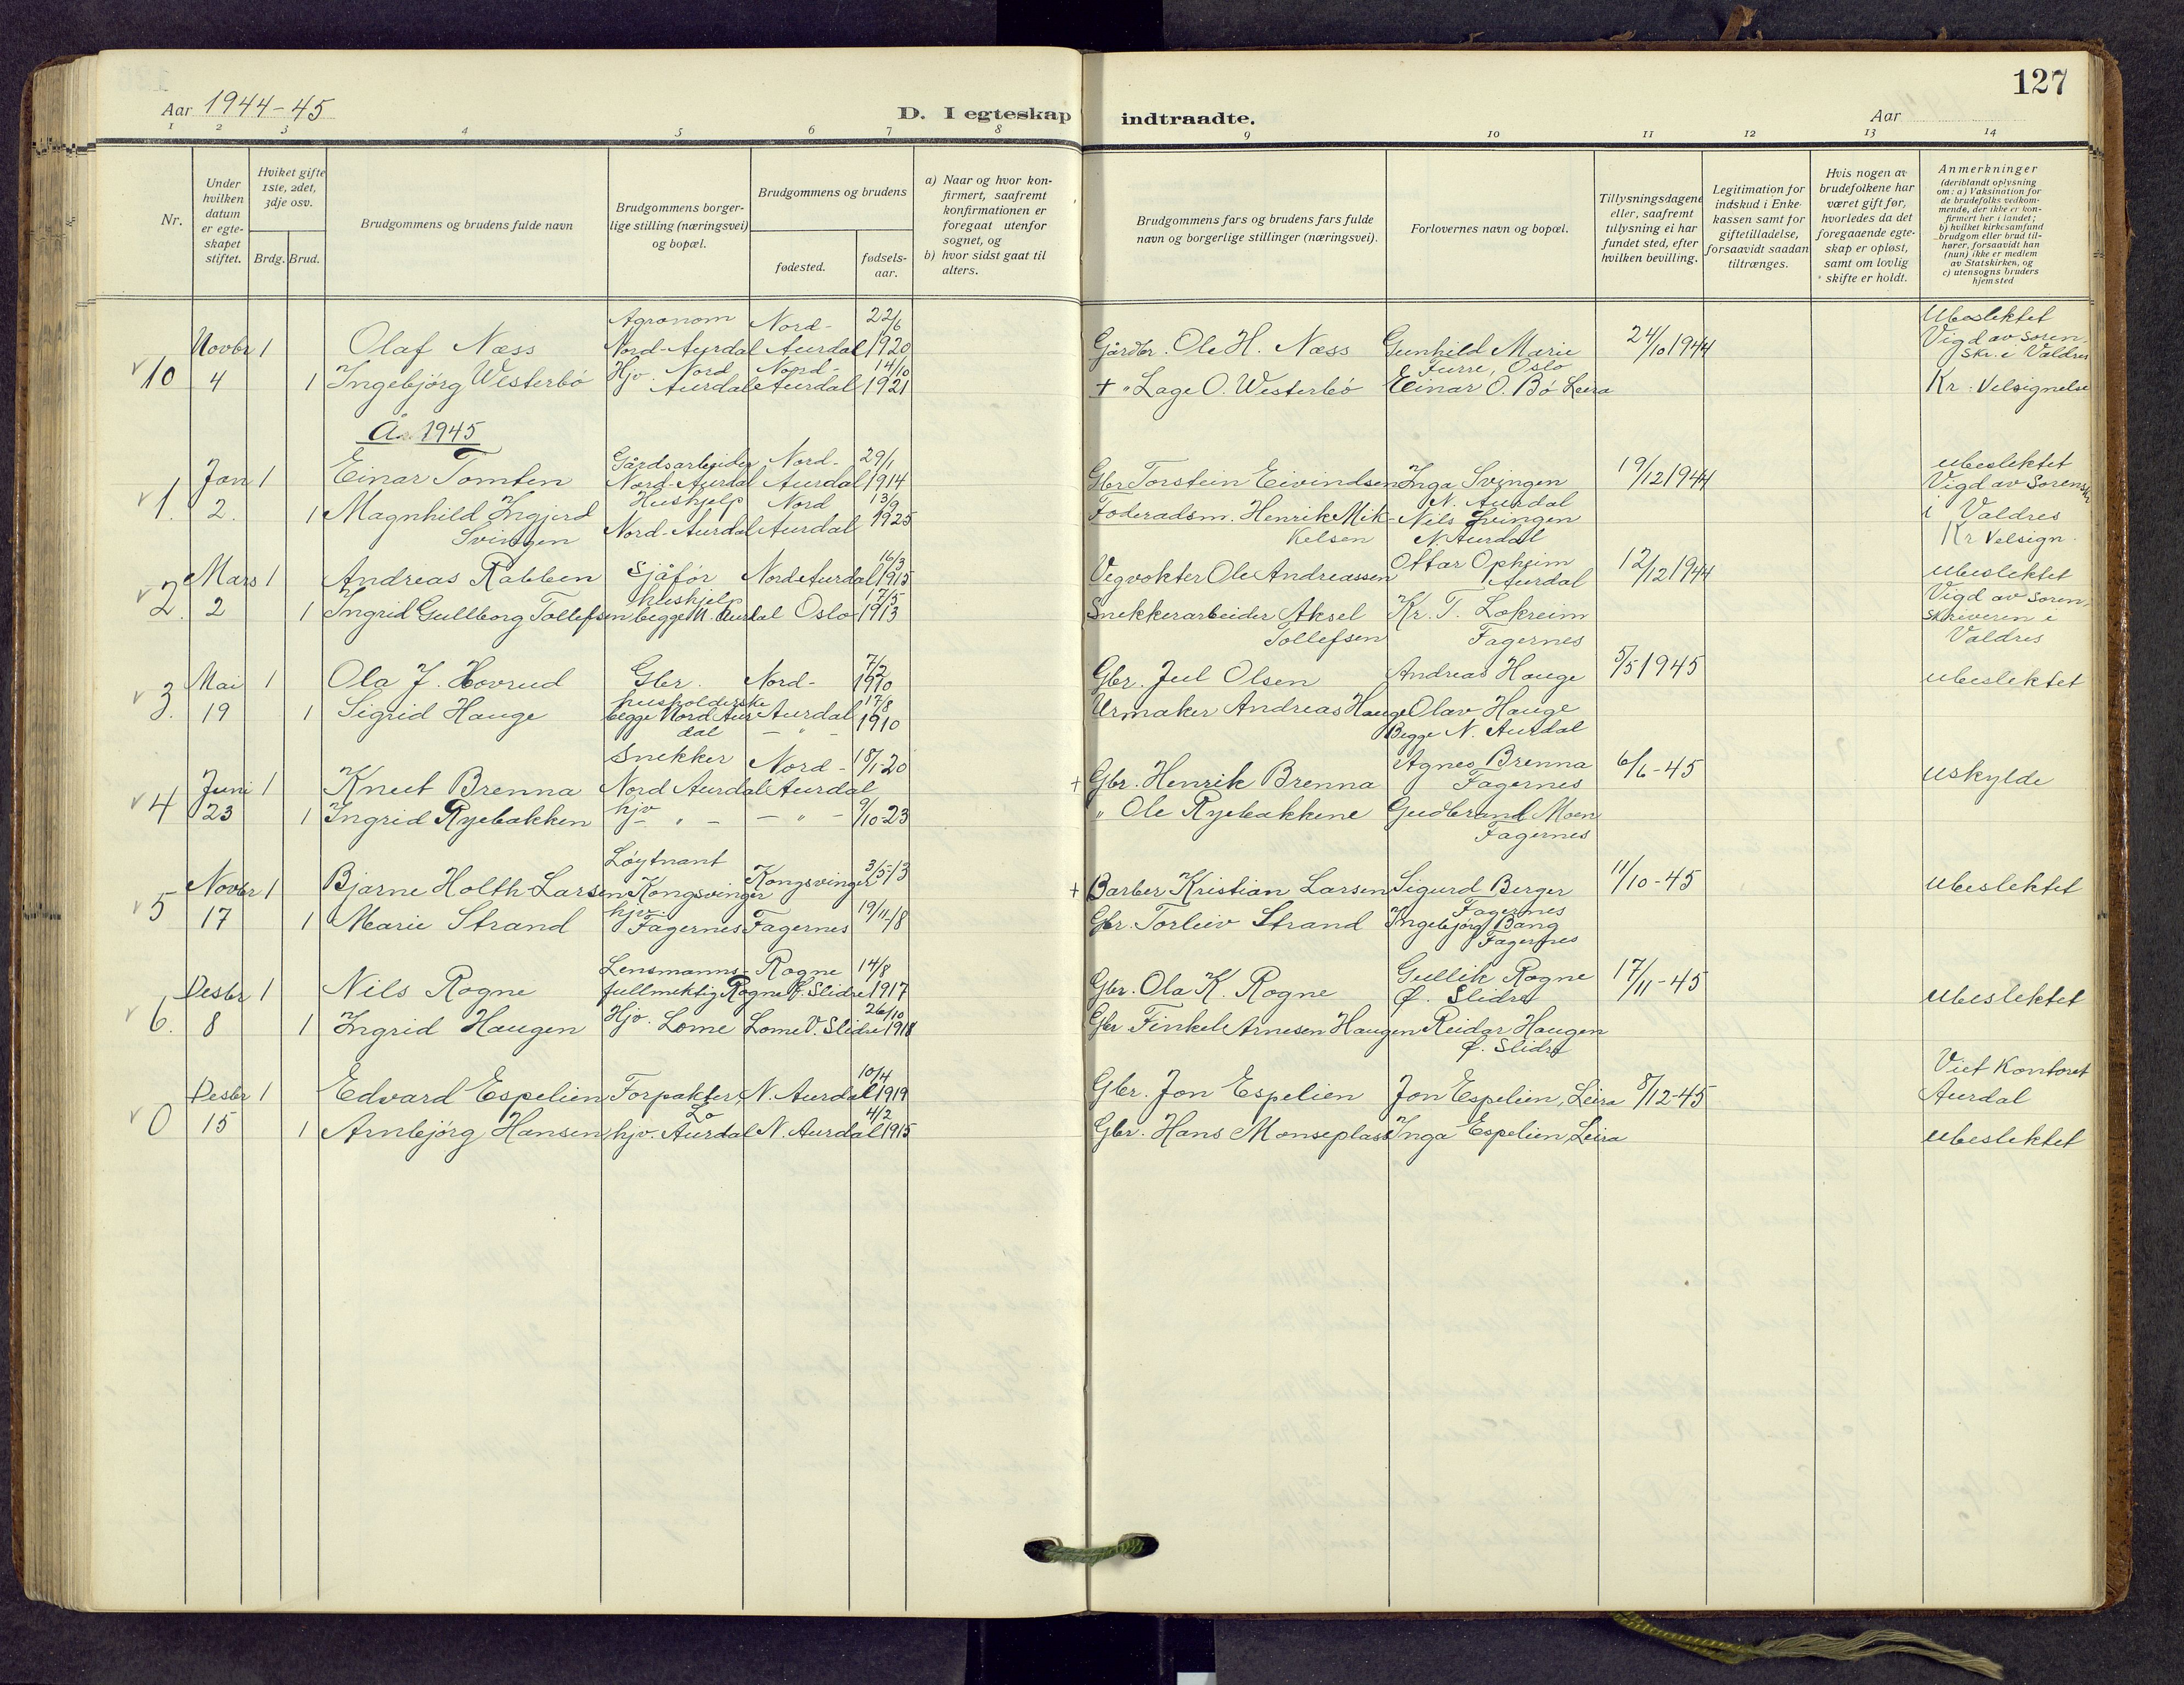 127
Aar 1944-45
D. I egteskap indtraadte.
Aar
1 2 3 4 5 6 7 8 9 10 11 12 13 14
Nr.
Under hvilken datum er egte-skapet stiftet.
Hviket gifte 1ste, 2det, 3dje osv.
Brdg. Brud.
Brudgommens og brudens fulde navn
Brudgommens borger-lige stilling (næringsvei) og bopæl.
Brudgommens og brudens
fødested.
fødsels-aar.
a) Naar og hvor kon-firmert, saafremt konfirmationen er foregaat utenfor sognet, og
b) hvor sidst gaat til alters.
Brudgommens fars og brudens fars fulde navn og borgerlige stillinger (næringsvei).
Forlovernes navn og bopæl.
Tillysningsdagene eller, saafremt tillysning ei har fundet sted, efter hvilken bevilling.
Legitimation for indskud i Enke-kassen samt for giftetilladelse, forsaavidt saadan tiltrænges.
Hvis nogen av brudefolkene har været gift før, hvorledes da det foregaaende egte-skap er opløst, samt om lovlig skifte er holdt.
Anmerkninger
(deriblandt oplysning om: a) Vaksination for de brudefolks vedkom-mende, der ikke er kon-firmert her i landet; b) hvilket kirkesamfund brudgom eller brud til-hører, forsaavidt han (hun) ikke er medlem av Statskirken, og c) utensogns bruders hjemsted
v 10 Novbr 1 Olaf Næss Agronom Nord-Aurdal Nord-Aurdal 22/6 1920 Gårdbr. Ole H. Næss Gunhild Marie Furre, Oslo 24/10 1944 Ubeslektet Vigd av soren. skr. i Valdres
4 1 Ingebjörg Westerbö Hjv. Nord Aurdal Nord-Aurdal 14/10 1921 + " Lage O. Westerbö Einar O. Bö Leira Kr. Velsignelse
År 1945
v 1. Jan 1 Einar Tomten Gårdsarbeider Nord-Aurdal Nord-Aurdal 29/1 1914 Gbr Torstein Eivindsen Inga Svingen N. Aurdal 19/12 1944 ubeslektet Vigd av Sorenskr
2. 1 Magnhild Ingjerd Svingen Hushjelp Nord-Aurdal Nord Aurdal 13/9 1925 Föderådsm. Henrik Mik-kelsen Nils Svingen N. Aurdal i Valdres Kr Velsign.
v 2. Mars 1 Andreas Rabben Sjåför Nord Aurdal 16/3 1915 Vegvokter Ole Andreassen Ottar Opheim Aurdal 12/12 1944 ubeslektet
2 1 Ingrid Gullborg Tollefsen hushjelp begge N. Aurdal Oslo 17/5 1913 Snekkerarbeider Aksel Tollefsen Kr. T. Lokreim Fagernes Vigd av soren-skriveren i Valdres
v 3. Mai 1 Ola J. Hovrud Gbr. Nord- 7/2 1910 Gbr. Jul Olsen Andreas Hauge 5/5 1945 ubeslektet
19 1 Sigrid Hauge husholderske begge Nord Aur-dal Aurdal - " - 17/8 1910 Urmaker Andreas Hauge Olav Hauge Begge N. Aurdal
v 4 Juni 1 Knut Brenna Snekker Nord Aurdal Nord-Aurdal 18/1-20 + Gbr. Henrik Brenna Agnes Brenna Fagernes 6/6-45 uskylde
23 1 Ingrid Ryebakken hjv - " - - " - 9/10-23 " Ole Ryebakkene Gudbrand Moen Fagernes
v 5 Novbr 1 Bjarne Holth-Larsen Løytnant Kongsvinger Kongsvinger 3/5-13 + Barber Kristian Larsen Sigurd Berger Fagernes 11/10-45 ubeslektet
17 1 Marie Strand hjv. Fagernes Fagernes 19/11-18 Gbr. Torleiv Strand Ingebjörg Bang Fagernes
v 6. Desbr 1 Nils Rogne Lensmanns-fullmektig Rogne Rogne Ø. Slidre 14/8 1917 Gbr. Ola K. Rogne Gullik Rogne Ø. Slidre 17/11-45 ubeslektet
8 1 Ingrid Haugen Hjv. Lome Lome V. Slidre 26/10 1918 Gbr Finkel Arnesen Haugen Reidar Haugen Ø. Slidre
v 0 Desbr 1 Edvard Espelien Forpakter, Lo N. Aurdal 10/4 1919 Gbr. Jon Espelien Jon Espelien, Leira 8/12-45 Viet Kontoret Aurdal
15 1 Arnbjörg Hansen hjv. Aurdal N. Aurdal 4/2 1915 Gbr. Hans Monseplass Inga Espelien, Leira ubeslektet